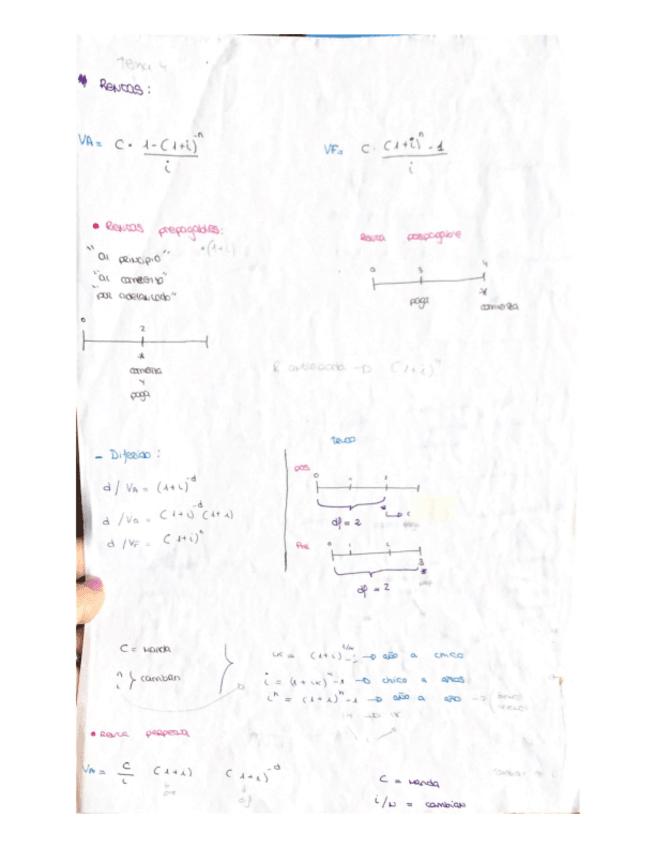 Tema 4
Rentas:
VA = C · 1-(1+i)^-n / i
VF = C · (1+i)^n - 1 / i
• Rentas prepagables:
·(1+i)
"al principio"
"al comienzo"
"por adelantado"
0 2
*
comienza
y
paga
Renta pospagable
0 3 4
paga *
comienza
(1+i)^n
- Diferido:
d/VA = (1+i)^-d
d/Va = (1+i)^-d (1+i)
d/VF = (1+i)^n
pos
0 1 2
df = 2
Pre
0 1 2 3
df = 2
C = manda
n
i } cambian
(1+i) -1 → año a chico
i = (1+ik)^n -1 → chico a años
(1+i)^n -1 → año a año
• Renta perpetua
VA = C/i (1+i) (1+i)^-d
C = manda
i/n = cambian